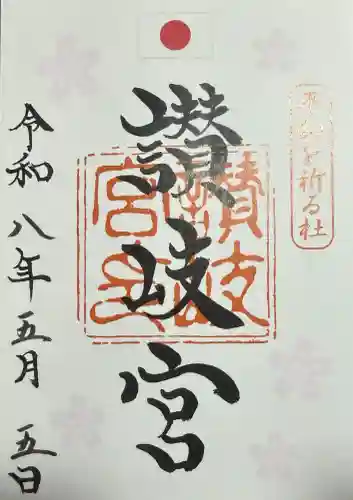 平和を祈る社
讃岐宮
讃岐宮印
令和八年五月五日